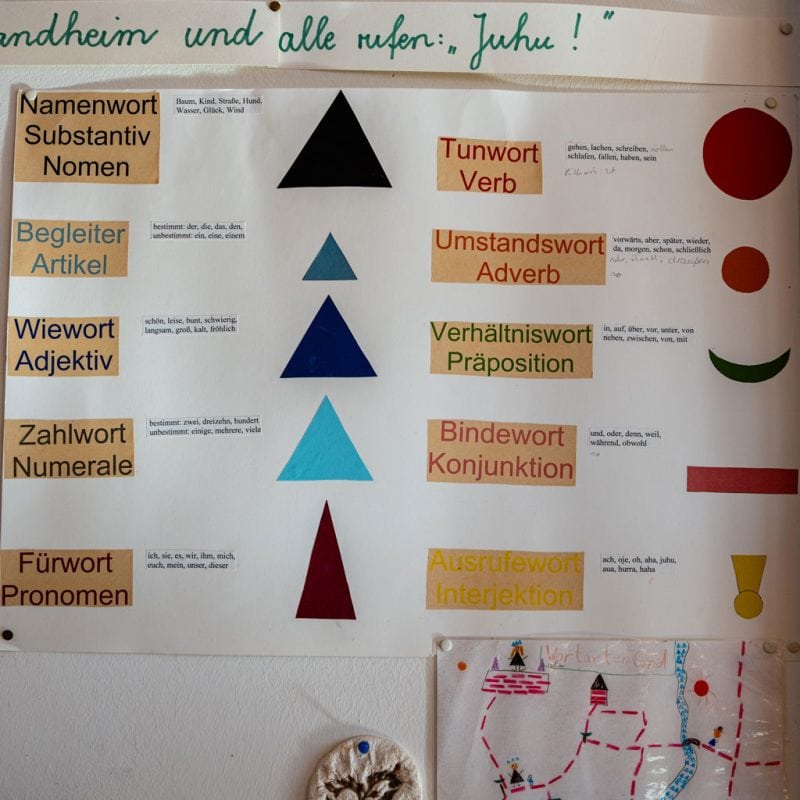 andheim und alle rufen: „Juhu!"
Namenwort
Substantiv
Nomen
Baum, Kind, Straße, Hund,
Wasser, Glück, Wind
Begleiter
Artikel
bestimmt: der, die, das, den,
unbestimmt: ein, eine, einem
Wiewort
Adjektiv
schön, leise, bunt, schwierig,
langsam, groß, kalt, fröhlich
Zahlwort
Numerale
bestimmt: zwei, dreizehn, hundert
unbestimmt: einige, mehrere, viele
Fürwort
Pronomen
ich, sie, es, wir, ihm, mich,
euch, mein, unser, dieser
Tunwort
Verb
gehen, lachen, schreiben,
schlafen, fallen, haben, sein
Umstandswort
Adverb
vorwärts, aber, später, wieder,
da, morgen, schon, schließlich
draußen
Verhältniswort
Präposition
in, auf, über, vor, unter, von
neben, zwischen, von, mit
Bindewort
Konjunktion
und, oder, denn, weil,
während, obwohl
Ausrufewort
Interjektion
ach, oje, oh, aha, juhu,
aua, hurra, haha
Wortarten